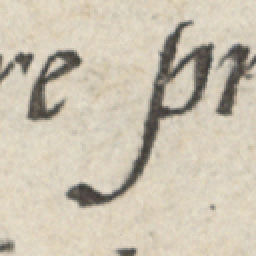 re pr